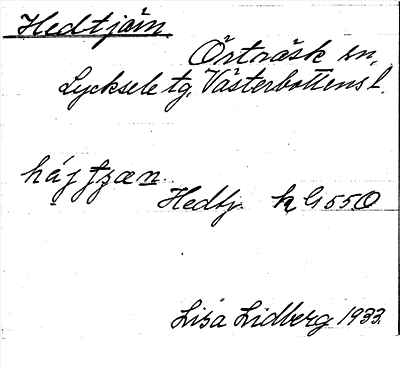 Hedtjärn.
Örträsk sn,
Lycksele tg. Västerbottens l.
Hedtj. k G 550
Lisa Lidberg 1933.